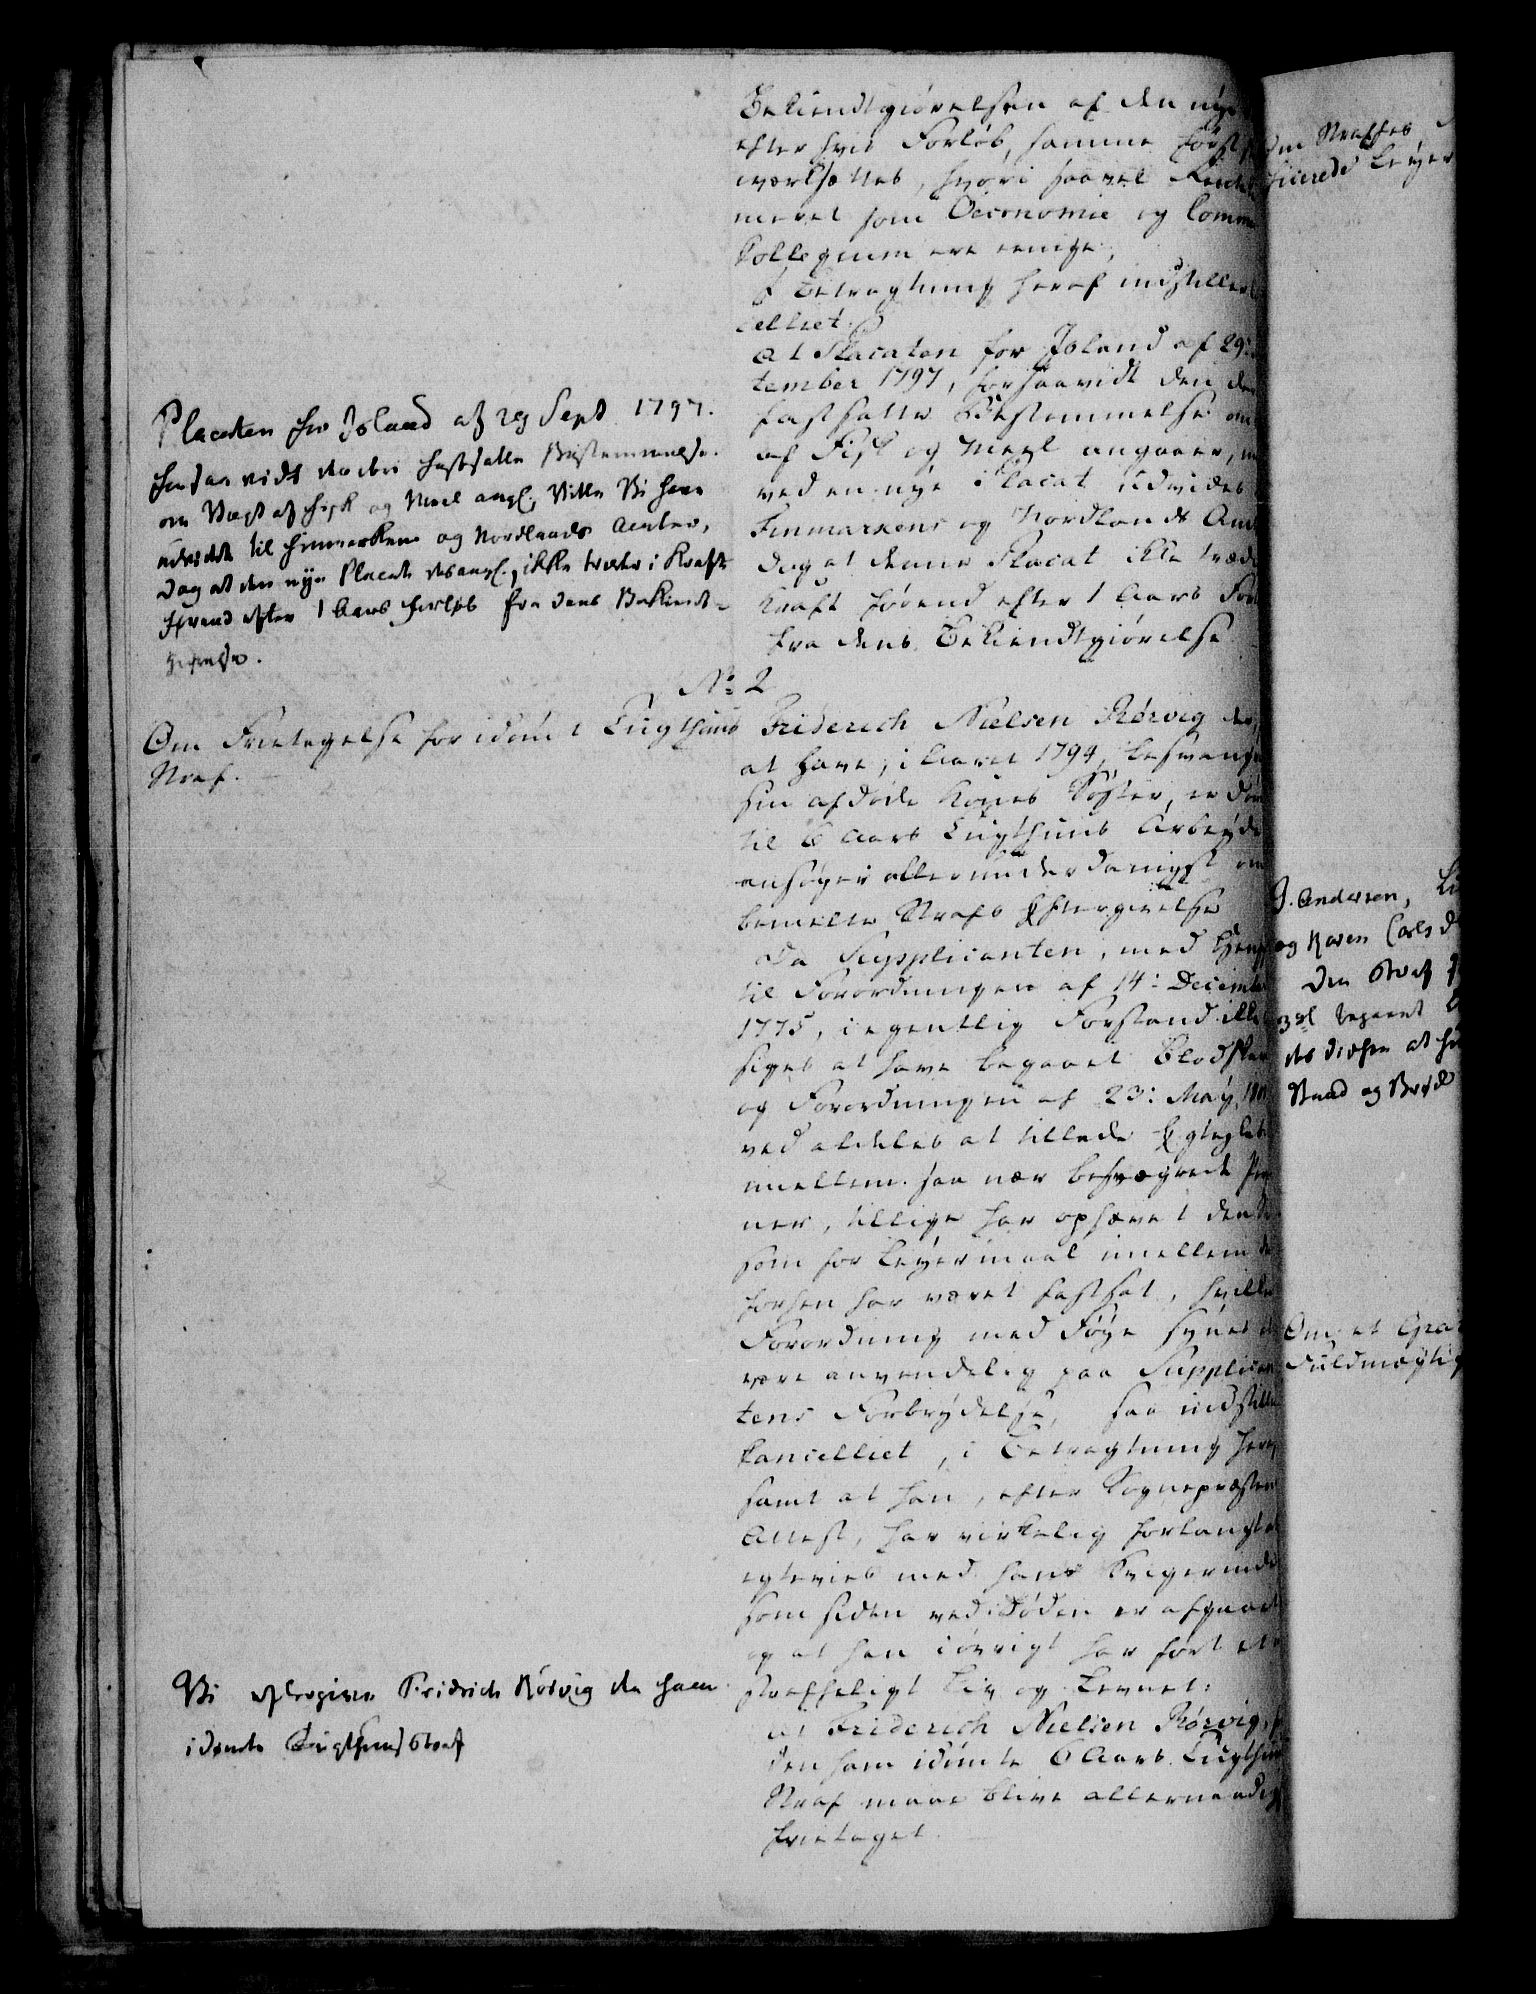 Bekiendtgiørelsen af den nye
efter hvis Forløb, samme først
iværksættes, hvori saavel Rente
meret som Oeconomie og Comm
Collegium ere eenige,
I Betragtning heraf indstiller
celliet:
At Placaten for Island af 29:
tember 1797, forsaavidt den der
fastsatte Bestemmelse om
af Fisk og Meel angaaer,
ved en nye Placat udvides
Finmarkens og Nordlands Amt
dog at denne Placat ikke træde
Kraft førend efter 1 Aars For
fra dens Bekiendtgiørelse
Placaten for Island af 29 Sept 1797.
forsaavidt derudi fastsatte Bestemmelse
om Vægt af Fisk og Meel ang: Ville Vi have
udvidet til Finmarkens og Nordlands Amter,
Dog at den nye Placat desang:, ikke træder i Kraft
førend efter 1 Aars Forløb fra dens Bekiendt-
giørelse.
No: 2
Om Fritagelse for idømt Tugthuus
Straf.
Friderich Nielsen Rørvig der,
at have, i Aaret 1794, besvangr
sin afdøde Kones Søster, er døm
til 6 Aars Tugthuus Arbeyde
ansøger allerunderdanigst om
bemelte Strafs Eftergivelse
Da Supplicanten, med Hens
til Forordningen af 14: Decembr
1775, i egentlig Forstand ikke
siges at have begaaet Blodskam
og Forordningen af 23: May 180
ved aldeles at tillade Egteskab
imellem saa nær besvogrede Per
ner, tillige har ophævet den
som for Leyermaal imellem
forhen har været fastsat, hvilke
Forordning med Føye synes
være anvendelig paa Supplican
tens Forbrydelse, saa indstille
Cancelliet, i Betragtning heraf
samt at han, efter Sognepræstens
Attest, har virkelig forlangt
egtevies med hans Svigerinde
som siden ved Døden er afgaaet
og at han iøvrigt har ført et
straffeligt Liv og Levnet:
At Friderich Nielsen Rørvig,
den ham idømte 6 Aars Tugthuus
Straf maae blive allernaadig
fritaget.
Vi eftergive Fridrich Rørvig den ham
idømte Tugthuus Straf
Om Straffes
ficerede Leyer
J. Andersen,
og Karen Carls D
Den Straf
3de begaaet
des dissen at
Vand og Brød
Om et Gra
Fuldmægtig